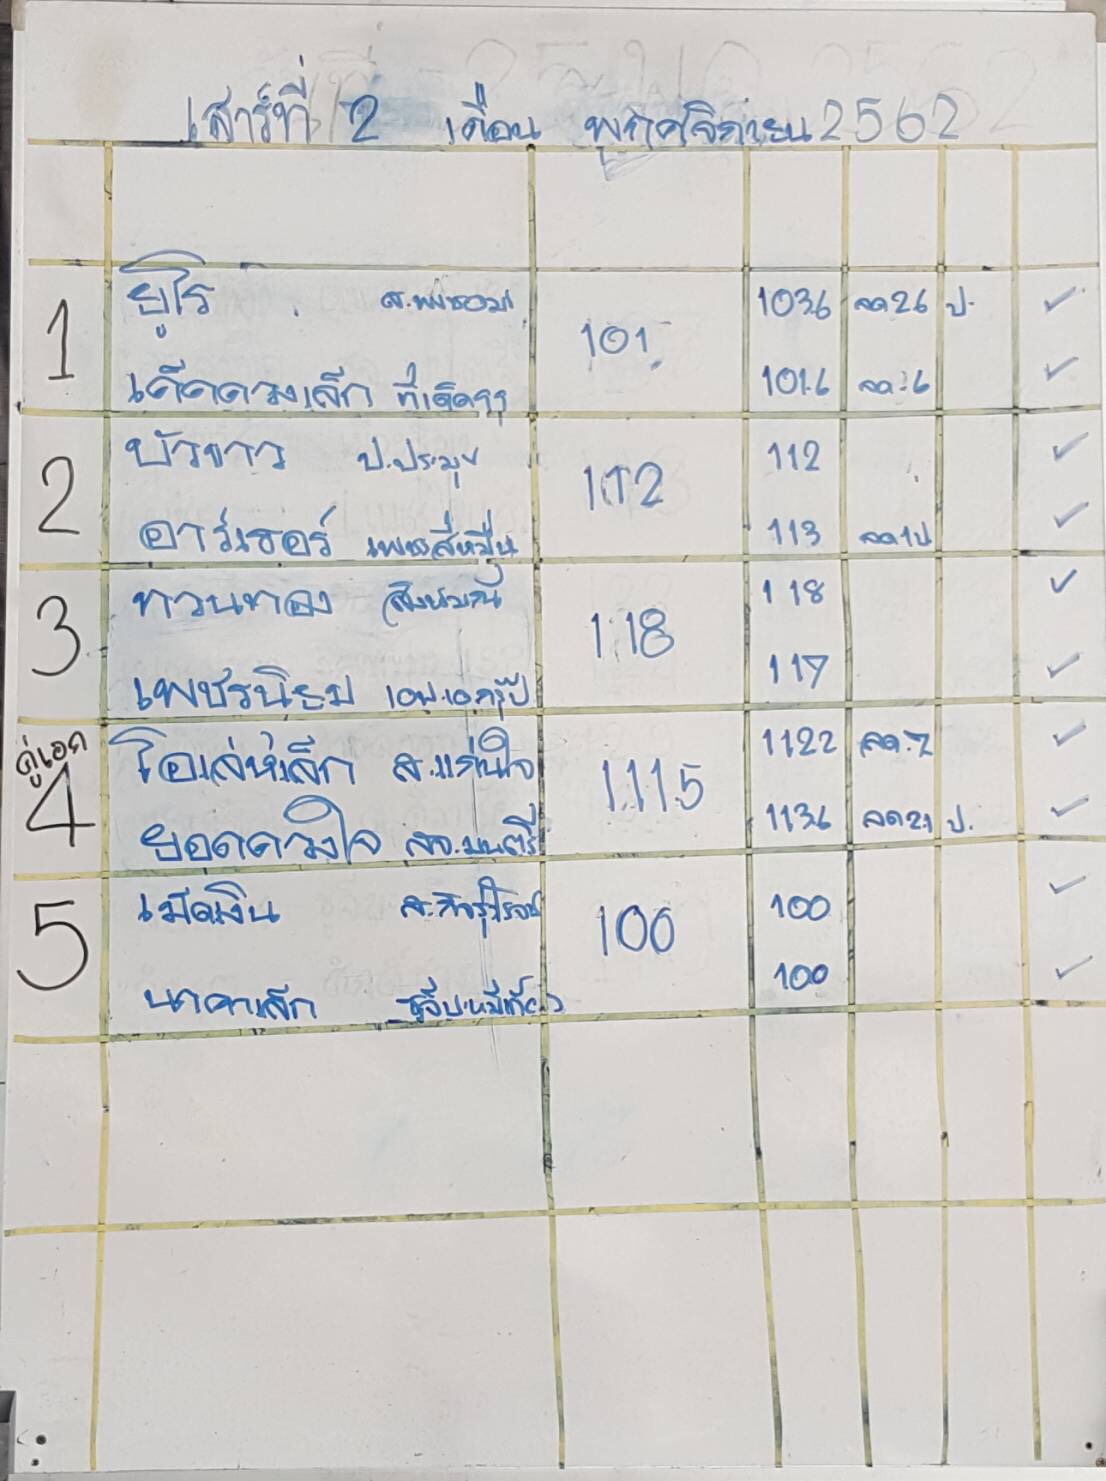 เสาร์ที่ 2 เดือน พฤศจิกายน 2562
1 ยูโร 101 1036 ลด 26 ป.
เด็ดดวงเล็ก 1016 ลด 6
2 บัวขาว ป.ประมุข 112 112
อาร์เธอร์ เพชรสี่หมื่น 113 ลด 1 ป
3 ทวนทอง สิงห์มณี 118 118
เพชรนิยม เอฟ.เอ.กรุ๊ป 117
คู่เอก
4 โอเล่ห์เล็ก ส.แก่นใจ 111.5 1122 ลด.7
ยอดดวงใจ สจ.มนตรี 1136 ลด 21 ป.
5 เม็ดเงิน 100 100
นาคาเล็ก 100